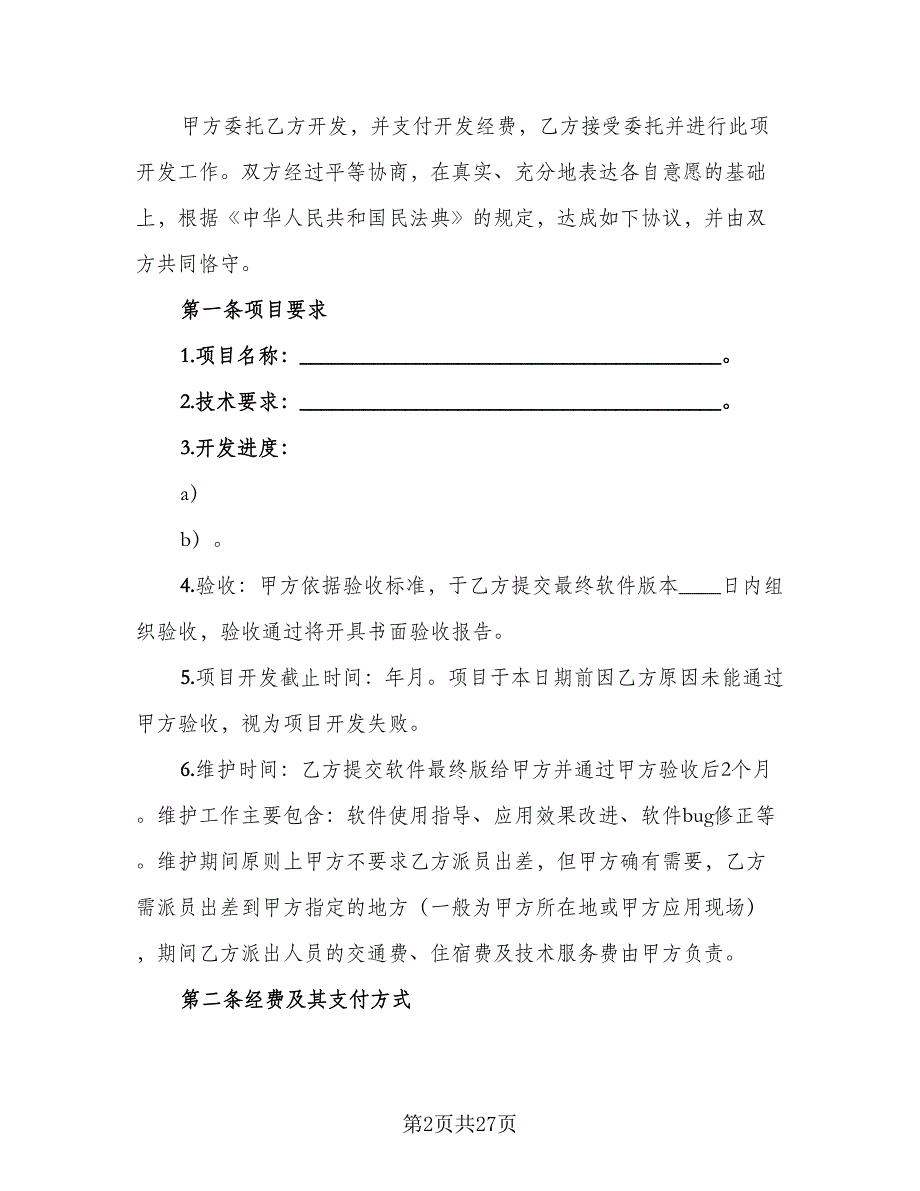 甲方委托乙方开发，并支付开发经费，乙方接受委托并进行此项
开发工作。双方经过平等协商，在真实、充分地表达各自意愿的基础
上，根据《中华人民共和国民法典》的规定，达成如下协议，并由双
方共同恪守。
第一条项目要求
1.项目名称：________________________________________。
2.技术要求：________________________________________。
3.开发进度：
a）
b）。
4.验收：甲方依据验收标准，于乙方提交最终软件版本____日内组
织验收，验收通过将开具书面验收报告。
5.项目开发截止时间：年月。项目于本日期前因乙方原因未能通过
甲方验收，视为项目开发失败。
6.维护时间：乙方提交软件最终版给甲方并通过甲方验收后2个月
。维护工作主要包含：软件使用指导、应用效果改进、软件bug修正等
。维护期间原则上甲方不要求乙方派员出差，但甲方确有需要，乙方
需派员出差到甲方指定的地方（一般为甲方所在地或甲方应用现场）
，期间乙方派出人员的交通费、住宿费及技术服务费由甲方负责。
第二条经费及其支付方式
第2页共27页